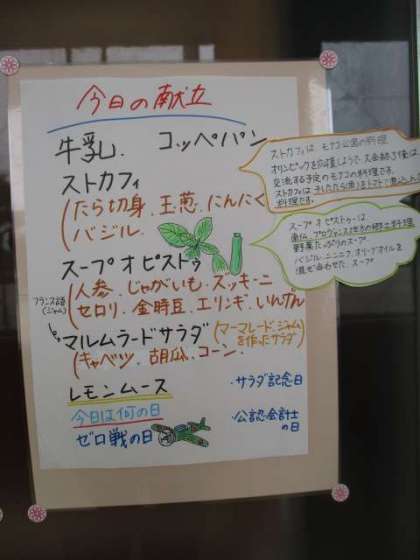 今日の献立
牛乳. コッペパン
ストカフィ
(たら切身.玉葱.にんにく
バジル
ストカフィは モナコ公国の料理
オリンピックを応援しようで、大会終了後に
交流する予定のモナコの料理です。
ストカフィは干したたら(魚)をトマトで煮込んだ
料理です。
スープオピストゥ
(人参.じゃがいも.ズッキーニ
セロリ.金時豆.エリンギ.いんげん
スープオピストゥは
南仏プロヴァンス地方の郷土料理
野菜たっぷりのスープ
バジル、ニンニク、オリーブオイルを
混ぜ合わせた、スープ
フランス語
(ジャム)
マルムラードサラダ
(マーマレードジャム
を作ったサラダ)
(キャベツ.胡瓜.コーン.
レモンムース
・サラダ記念日
今日は何の日
・公認会計士
の日
ゼロ戦の日